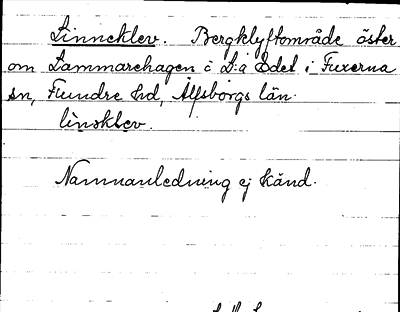 Linneklev. Bergklyftområde öster
om Lammarehagen i L:a Edet i Fuxerna
sn, Flundre hd, Älfsborgs län.
linsklev.
Namnanledning ej känd.